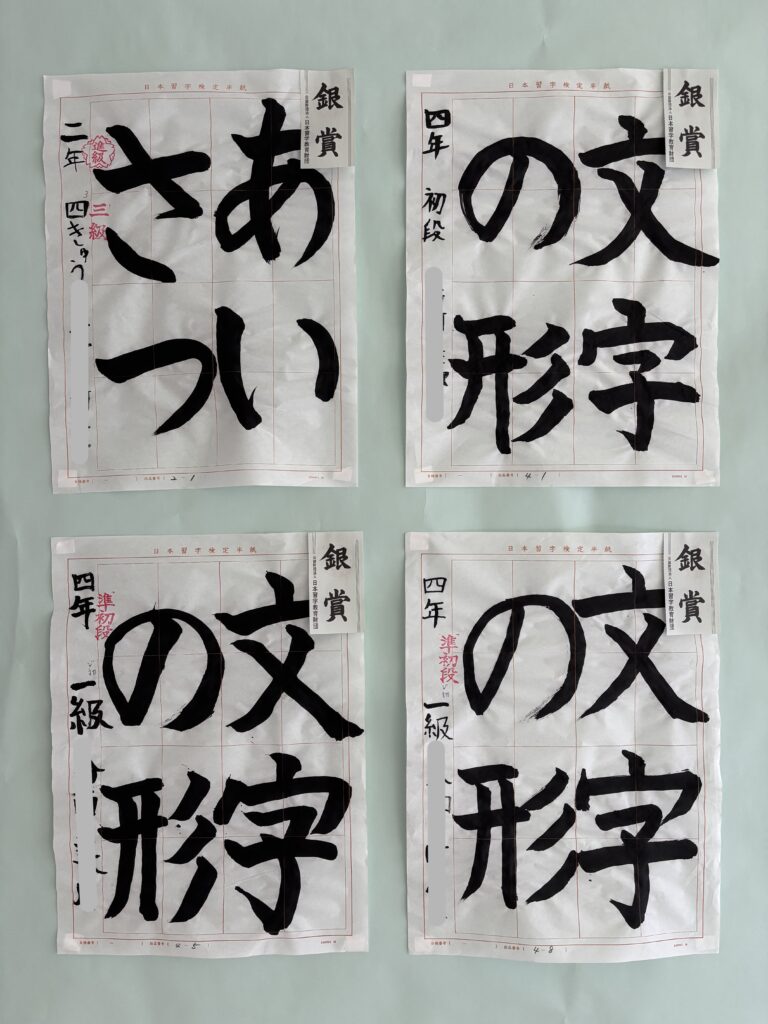 日本習字検定半紙
銀賞
公益財団法人日本習字教育財団
あい
さつ
準級
三級
二年 四きゅう
2-1
日本習字検定半紙
銀賞
公益財団法人日本習字教育財団
文字
の形
四年 初段
4-1
日本習字検定半紙
銀賞
公益財団法人日本習字教育財団
文字
の形
準初段
四年 一級
4-5
日本習字検定半紙
銀賞
公益財団法人日本習字教育財団
文字
の形
準初段
四年 一級
4-8